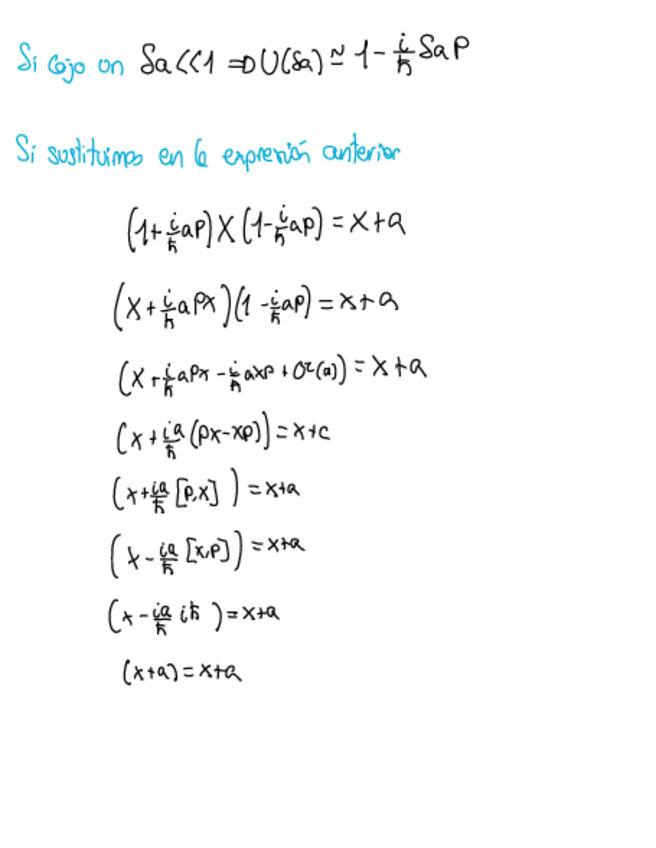 Si cojo un δa<<1 ⇒ U(δa) ≃ 1 - i/ħ δa P
Si sustituimos en la expresión anterior
(1 + i/ħ aP) X (1 - i/ħ aP) = X + a
(X + i/ħ a PX)(1 - i/ħ aP) = X + a
(X + i/ħ a PX - i/ħ a XP + O²(a)) = X + a
(X + ia/ħ (PX - XP)) = X + c
(X + ia/ħ [P,X]) = X + a
(X - ia/ħ [X,P]) = X + a
(X - ia/ħ iħ) = X + a
(X + a) = X + a